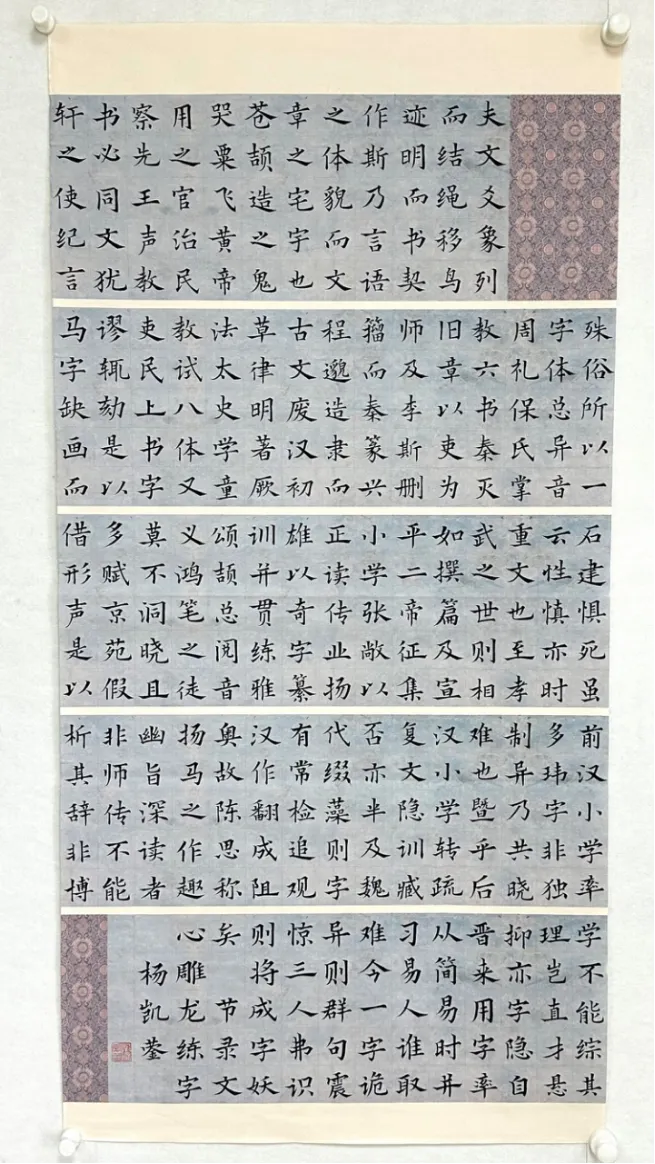 夫文爻象列
而结绳移鸟
迹明而书契
作斯乃言语
之体貌而文
章之宅字也
苍颉造之鬼
哭粟飞黄帝
用之官治民
察先王声教
书必同文犹
轩之使纪言
殊俗所以一
字体总异音
周礼保氏掌
教六书秦灭
旧章以吏为
师及李斯删
籀而秦篆兴
程邈造隶而
古文废汉初
草律明著厥
法太史学童
教试八体又
吏民上书字
谬辄劾是以
马字缺画而
石建惧死虽
云性慎亦时
重文也至孝
武之世则相
如撰篇及宣
平二帝征集
小学张敞以
正读传业扬
雄以奇字纂
训并贯练雅
颂颉总阅音
义鸿笔之徒
莫不洞晓且
多赋京苑假
借形声是以
前汉小学率
多玮字非独
制异乃共晓
难也暨乎后
汉小学转疏
复文隐训臧
否亦半及魏
代缀藻则字
有常检追观
汉作翻成阻
奥故陈思称
扬马之作趣
幽旨深读者
非师传不能
析其辞非博
学不能综其
理岂直才悬
抑亦字隐自
晋来用字率
从简易时并
习易人谁取
难今一字诡
异则群句震
惊三人弗识
则将成字妖
矣 节录文
心雕龙练字
杨凯蓥